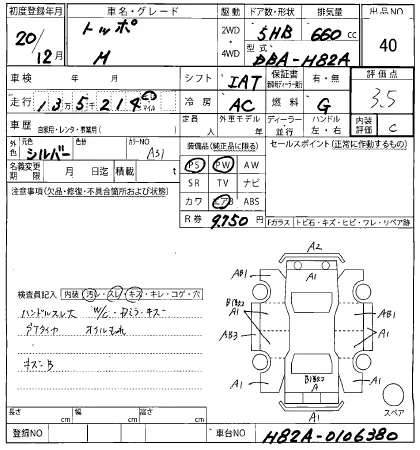 初度登録年月 車名・グレード 駆動 ドア数・形状 排気量 出品NO
20/12月 トッポ 2WD・4WD 5HB 660cc 40
M 型式 DBA-H82A
車検 年 月 シフト IAT 保証書 有・無 評価点
走行 135214 km マイル 冷房 AC 燃料 G 3.5
車歴 自家用・レンタ・事業用( ) 定員 人 外車モデル 年 ディーラー・並行 ハンドル 左・右 内装評価 C
外色 元色 シルバー 色替 カラーNO A31 装備品(純正品に限る) セールスポイント(正常に作動するもの)
名義変更期限 月 日迄 積載 t PS PW AW
SR TV ナビ
注意事項(欠品・修復・不具合箇所および状態) カワ エアB ABS
R券 9,750 Fガラス トビ石・キズ・ヒビ・ワレ・リペア跡
A2
AB1 A1 AB1
A1 AB1
AB3 A1
A1 A1
A
A1
検査員記入 内装(汚レ・スレ・キズ・キレ・コゲ・穴
ハンドルスレ大 キズ
オイルもれ
キズ・B
スペア
長さ cm 幅 cm 高さ cm
登録NO 車台NO H82A-0106380